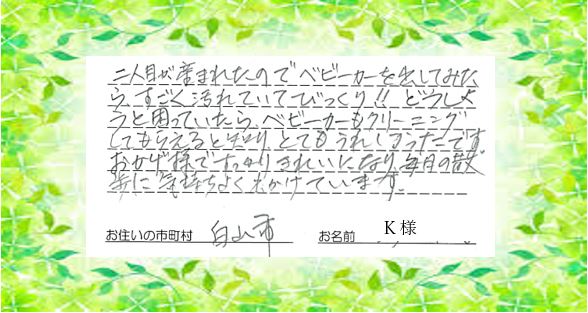 二人目が産まれたのでベビーカーを出してみた
ら、すごく汚れていてびっくり!! どうしよ
うと困っていたら、ベビーカーもクリーニング
してもらえると知り とてもうれしかったです
おかげ様ですっかりきれいになり、毎日の散
歩に気持ちよく出かけています。
お住いの市町村 白山市 お名前 K 様